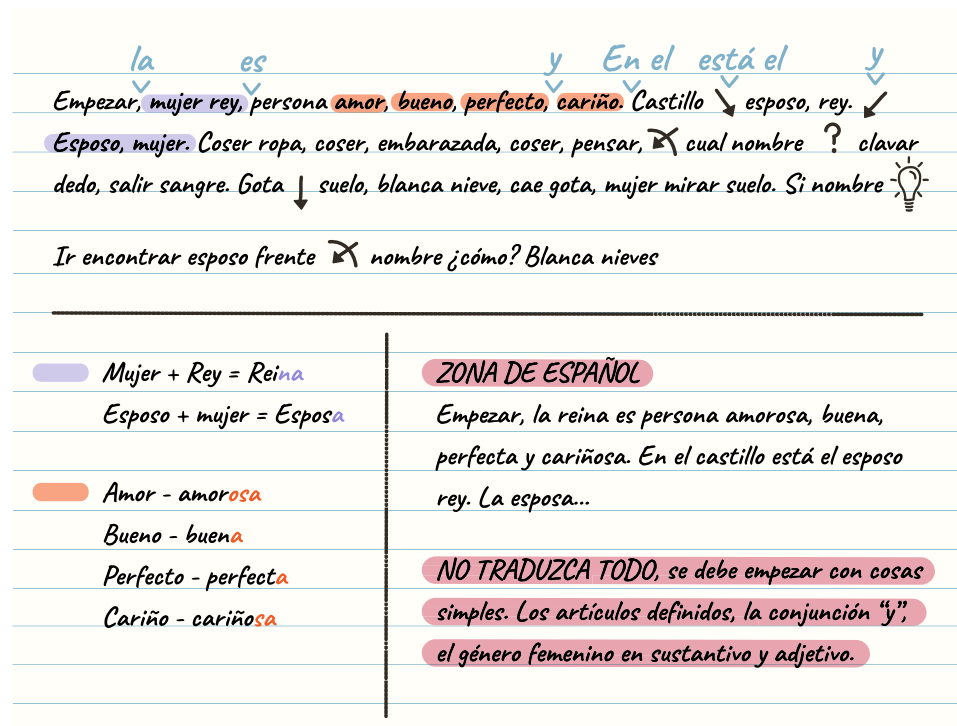 la es y En el está el y
Empezar, mujer rey, persona amor, bueno, perfecto, cariño. Castillo esposo, rey.
Esposo, mujer. Coser ropa, coser, embarazada, coser, pensar, cual nombre ? clavar
dedo, salir sangre. Gota suelo, blanca nieve, cae gota, mujer mirar suelo. Si nombre
Ir encontrar esposo frente nombre ¿cómo? Blanca nieves
Mujer + Rey = Reina
Esposo + mujer = Esposa
Amor - amorosa
Bueno - buena
Perfecto - perfecta
Cariño - cariñosa
ZONA DE ESPAÑOL
Empezar, la reina es persona amorosa, buena,
perfecta y cariñosa. En el castillo está el esposo
rey. La esposa...
NO TRADUZCA TODO, se debe empezar con cosas
simples. Los artículos definidos, la conjunción “y”,
el género femenino en sustantivo y adjetivo.